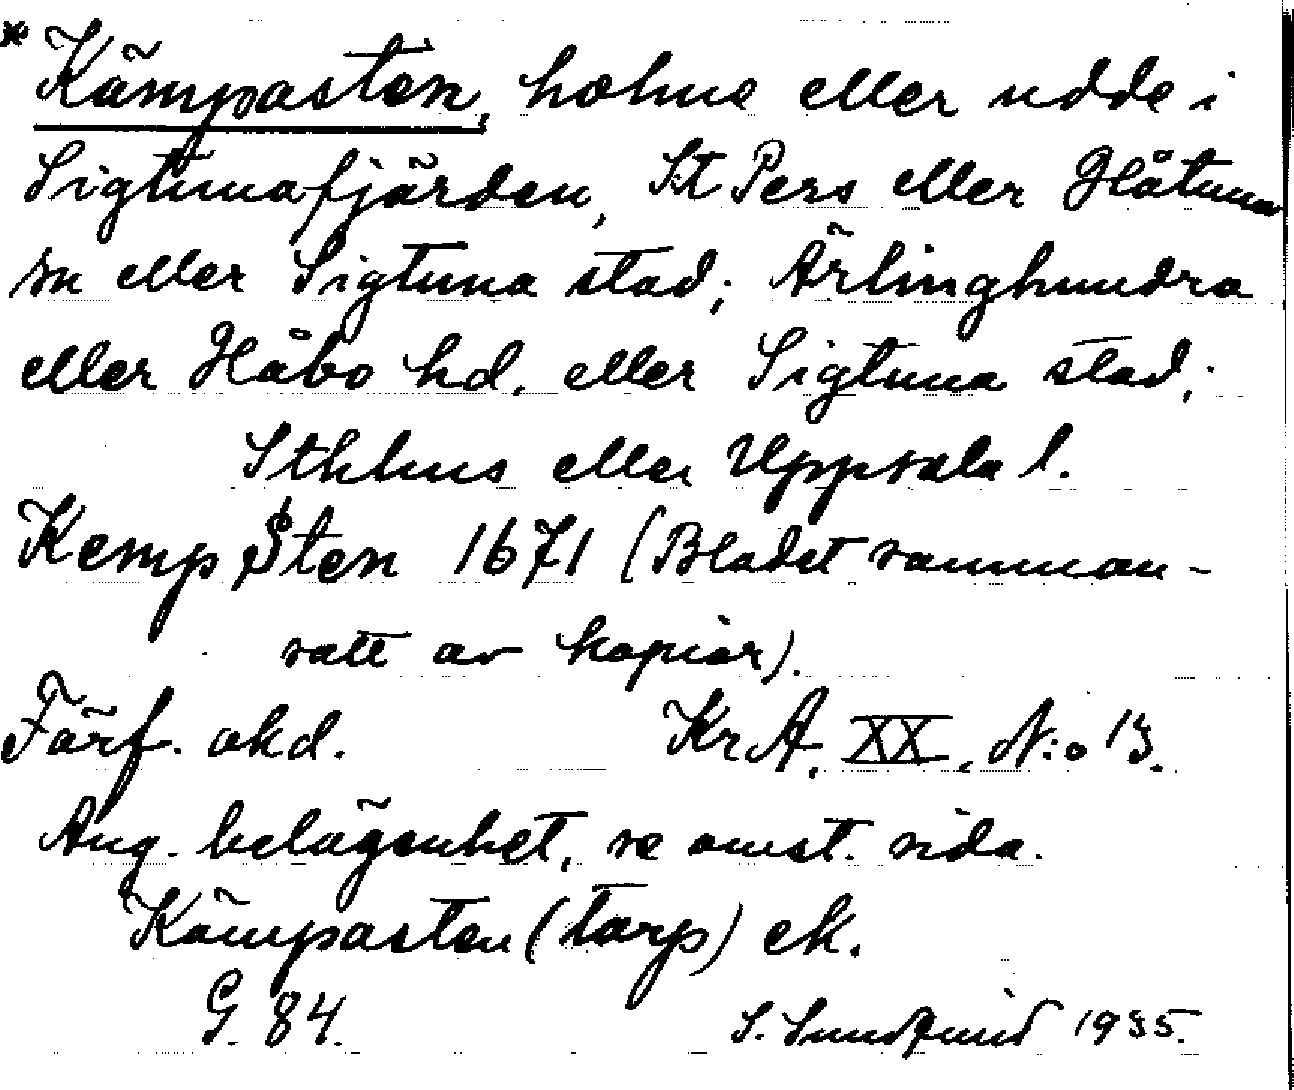 * Kämpasten, holme eller udde i
Sigtunafjärden, S:t Pers eller Håtuna
sn eller Sigtuna stad; Ärlinghundra
eller Håbo hd. eller Sigtuna stad;
Sthlms eller Uppsala l.
Kemp Sten 1671 (Bladet samman-
satt av kopior).
Förf. okd. KrA, XX, N:o 13.
Ang. belägenhet, se omst. sida.
Kämpasten (torp) ek.
G. 84. S. Sundquist 1935.